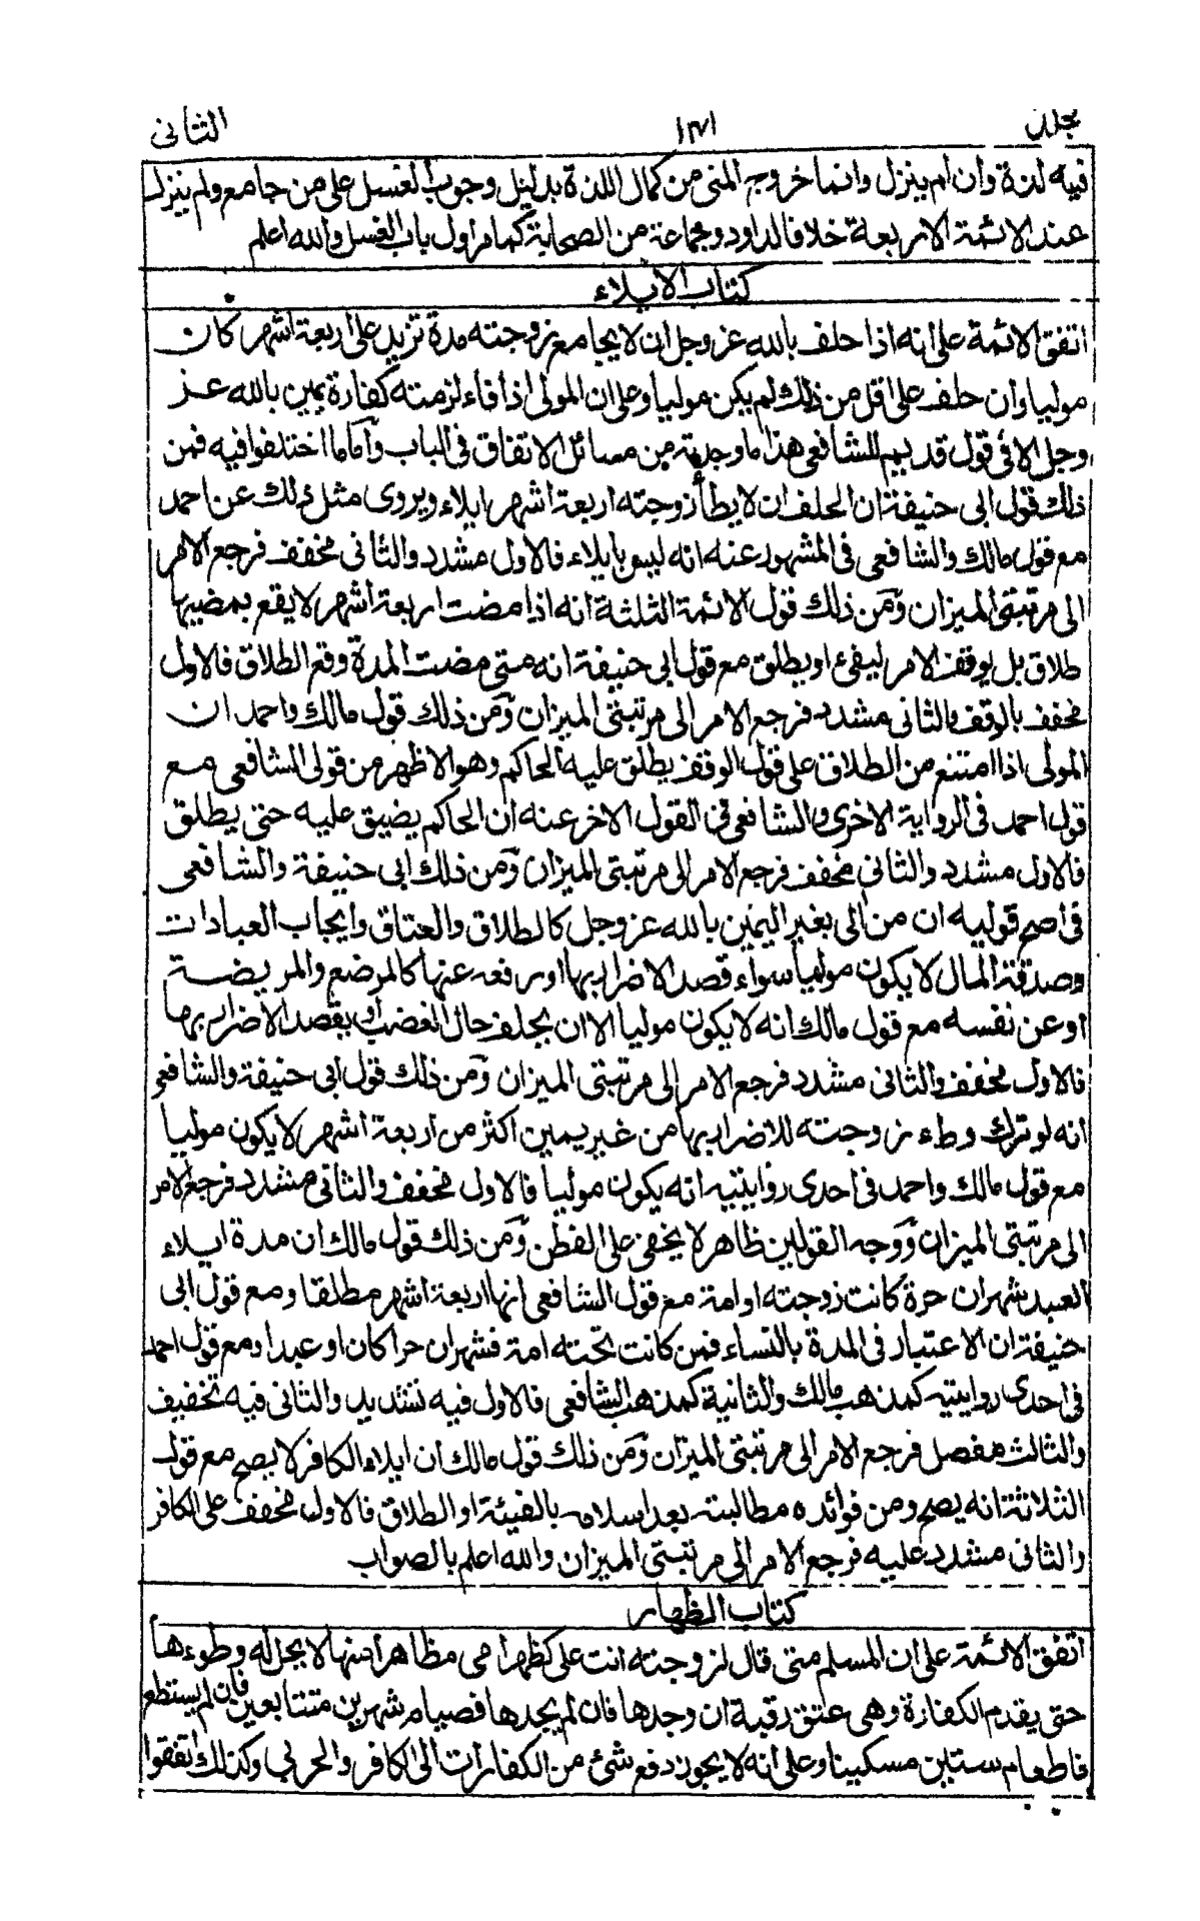 مجلد ١٣١ الثانى
فيه لذة وان لم ينزل وانما خروج المنى من كمال اللذة بدليل وجوب الغسل على من جامع ولم ينزل
عند الائمة الاربعة خلافا لداود وجماعة من الصحابة كما مر اول باب الغسل والله اعلم
كتاب الايلاء
اتفق الائمة على انه اذا حلف بالله عز وجل ان لا يجامع زوجته مدة تزيد على اربعة اشهر كان
موليا وان حلف على اقل من ذلك لم يكن موليا وعلى ان المولى اذا فاء لزمته كفارة يمين بالله عز
وجل الا فى قول قديم للشافعى هذا ما وجدته من مسائل الاتفاق فى الباب وآما ما اختلفوا فيه فمن
ذلك قول ابى حنيفة ان الحلف ان لا يطأ زوجته اربعة اشهر ايلاء ويروى مثل ذلك عن احمد
مع قول مالك والشافعى فى المشهور عنه انه ليس بايلاء فالاول مشدد والثانى مخفف فرجع الامر
الى مرتبتى الميزان وَمن ذلك قول الائمة الثلثة انه اذا مضت اربعة اشهر لا يقع بمضيها
طلاق بل يوقف الامر ليفئ او يطلق مع قول ابى حنيفة انه متى مضت المدة وقع الطلاق فالاول
مخفف بالوقف والثانى مشدد فرجع الامر الى مرتبتى الميزان وَمن ذلك قول مالك واحمد ان
المولى اذا امتنع من الطلاق على قول الوقف يطلق عليه الحاكم وهو الاظهر من قولى الشافعى مع
قول احمد فى الرواية الاخرى والشافعى فى القول الاخر عنه ان الحاكم يضيق عليه حتى يطلق
فالاول مشدد والثانى مخفف فرجع الامر الى مرتبتى الميزان وَمن ذلك ابى حنيفة والشافعى
فى اصح قوليه ان من الى بغير اليمين بالله عز وجل كالطلاق والعتاق وايجاب العبادات
وصدقة المال لا يكون موليا سواء قصد الاضرار بها او رفعه عنها كالمرضع والمريضة
او عن نفسه مع قول مالك انه لا يكون موليا الا ان يحلف حال الغضب او يقصد الاضرار بها
فالاول مخفف والثانى مشدد فرجع الامر الى مرتبتى الميزان وَمن ذلك قول ابى حنيفة والشافعى
انه لو ترك وطء زوجته للاضرار بها من غير يمين اكثر من اربعة اشهر لا يكون موليا
مع قول مالك واحمد فى احدى روايتيه انه يكون موليا فالاول مخفف والثانى مشدد فرجع الامر
الى مرتبتى الميزان وَوجه القولين ظاهر لا يخفى على الفطن وَمن ذلك قول مالك ان مدة ايلاء
العبد شهران حرة كانت زوجته او امة مع قول الشافعى انها اربعة اشهر مطلقا ومع قول ابى
حنيفة ان الاعتبار فى المدة بالنساء فمن كانت تحته امة فشهران حرا كان او عبدا ومع قول احمد
فى احدى روايتيه كمذهب مالك والثانية كمذهب الشافعى فالاول فيه تشديد والثانى فيه تخفيف
والثالث مفصل فرجع الامر الى مرتبتى الميزان وَمن ذلك قول مالك ان ايلاء الكافر لا يصح مع قول
الثلاثة انه يصح ومن فوائده مطالبته بعد اسلامه بالفيئة او الطلاق فالاول مخفف على الكافر
والثانى مشدد عليه فرجع الامر الى مرتبتى الميزان والله اعلم بالصواب
كتاب الظهار
اتفق الائمة على ان المسلم متى قال لزوجته انت على كظهر امى مظاهر منها لا يحل له وطوءها
حتى يقدم الكفارة وهى عتق رقبة ان وجدها فان لم يجدها فصيام شهرين متتابعين فان لم يستطع
فاطعام ستين مسكينا وعلى انه لا يجوز دفع شئ من الكفارات الى كافر والحربى وكذلك اتفقوا